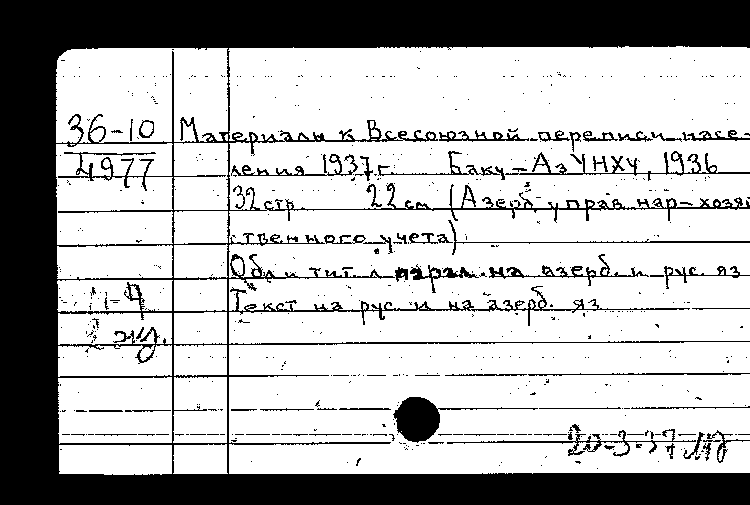 36-10
4977
Материалы к Всесоюзной переписи насе-
ления 1937 г. Баку – АзУНХУ, 1936
32 стр. 22 см (Азерб. управ нар-хозяй
ственного учета)
Обл и тит л парал. на азерб. и рус. яз
Текст на рус. и на азерб. яз
2 экз.
20-3-37